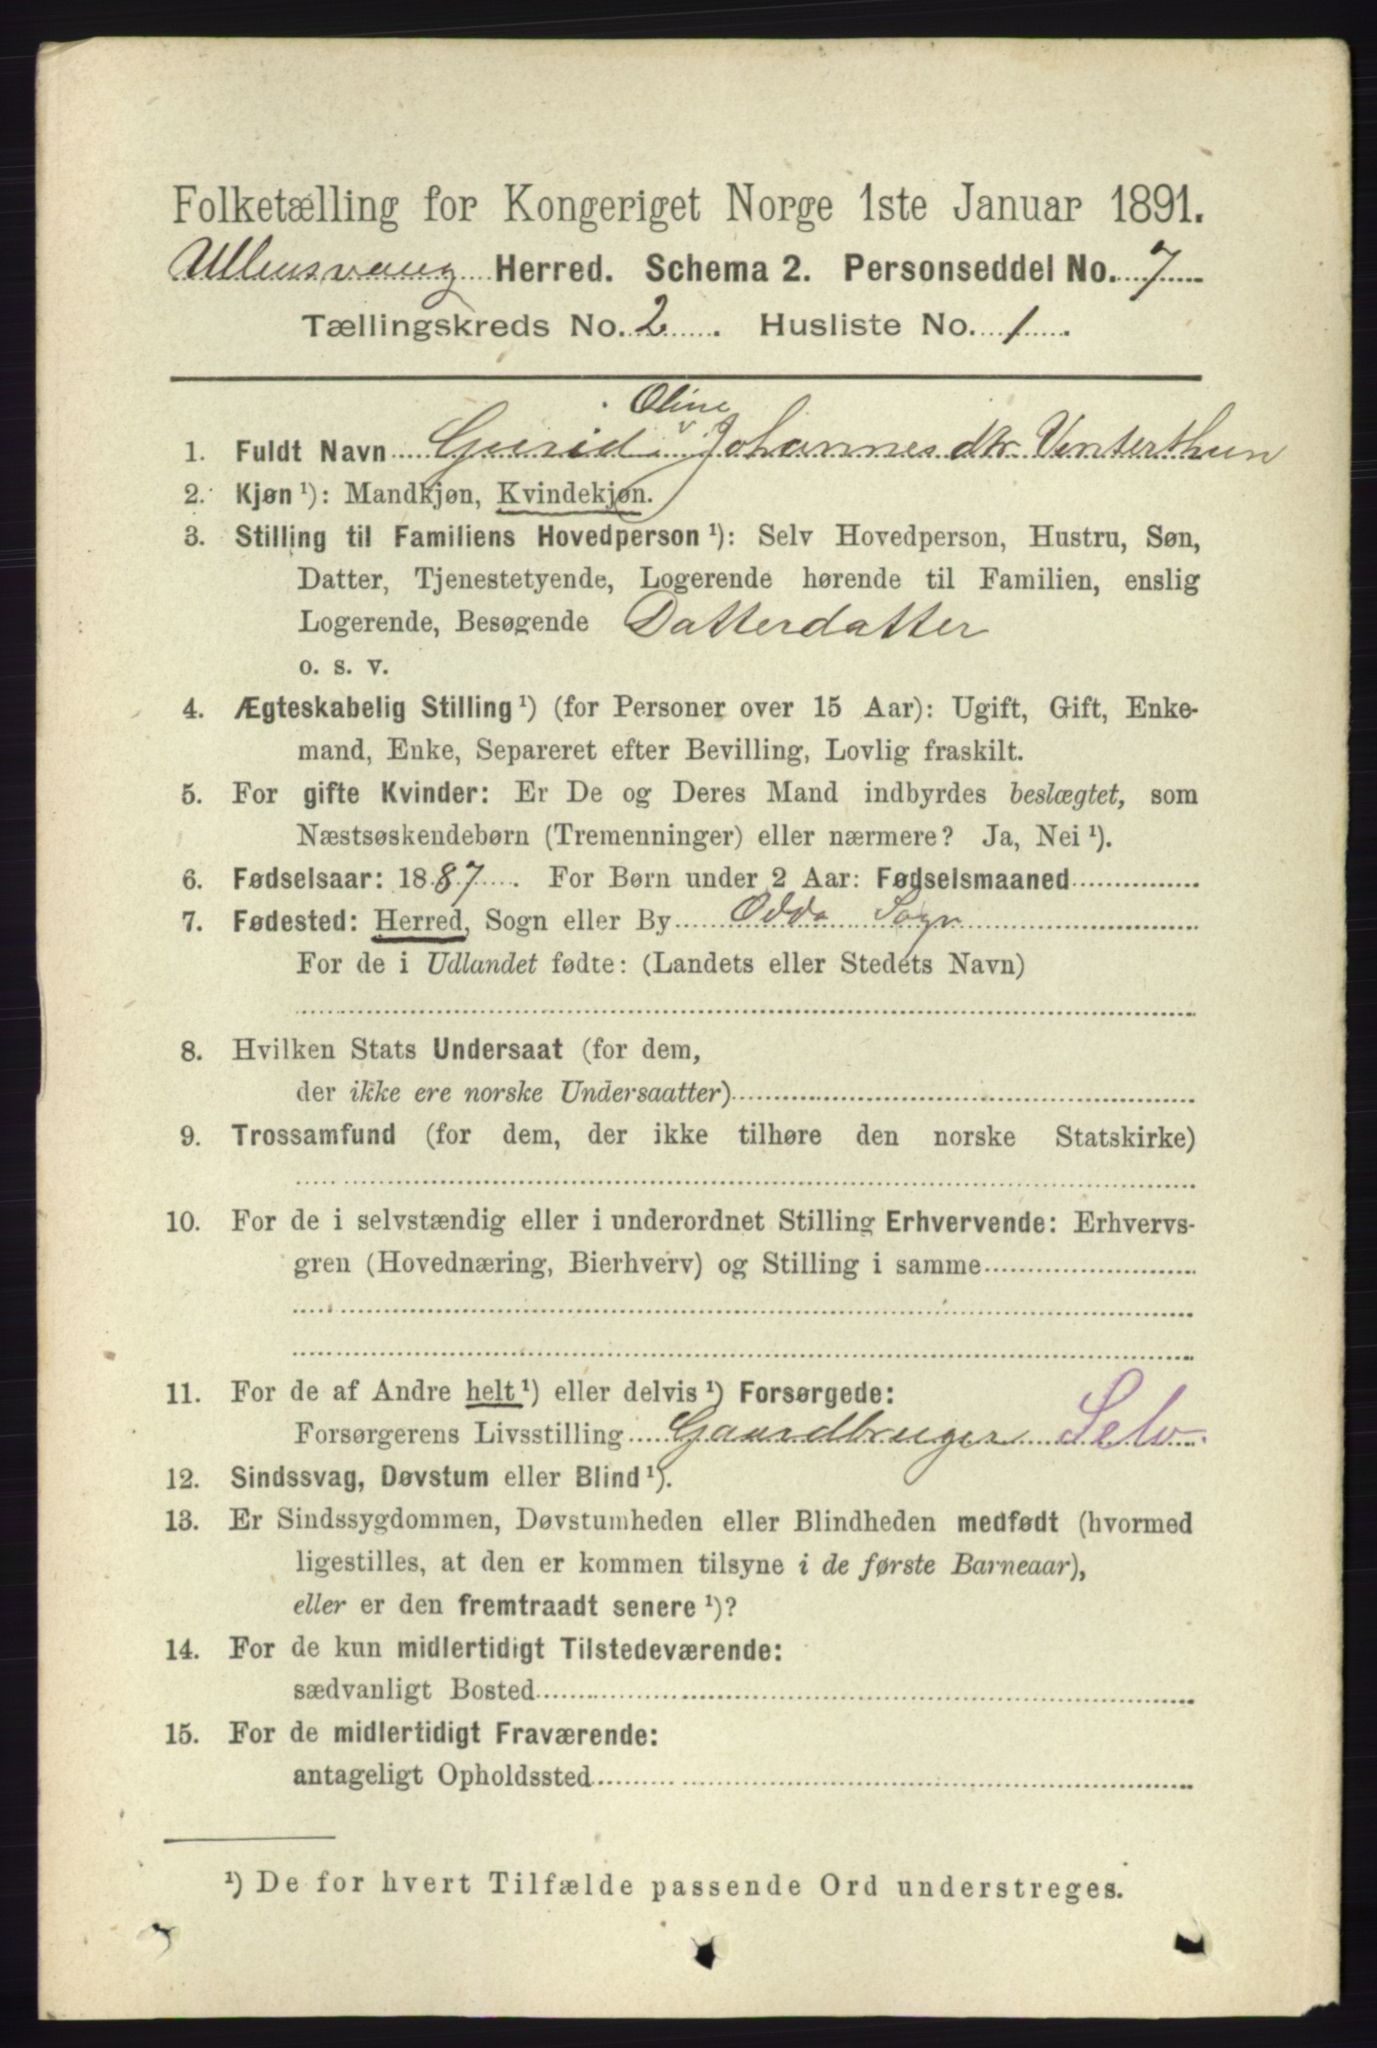 Folketælling for Kongeriget Norge 1ste Januar 1891.
Ullensvang Herred. Schema 2. Personseddel No. 7
Tællingskreds No. 2. Husliste No. 1.
Oline
1. Fuldt Navn Gurid v Johannesdtr. Vinterthun
2. Kjøn ¹): Mandkjøn, Kvindekjøn.
3. Stilling til Familiens Hovedperson ¹): Selv Hovedperson, Hustru, Søn,
Datter, Tjenestetyende, Logerende hørende til Familien, enslig
Logerende, Besøgende Datterdatter
o. s. v.
4. Ægteskabelig Stilling ¹) (for Personer over 15 Aar): Ugift, Gift, Enke-
mand, Enke, Separeret efter Bevilling, Lovlig fraskilt.
5. For gifte Kvinder: Er De og Deres Mand indbyrdes beslægtet, som
Næstsøskendebørn (Tremenninger) eller nærmere? Ja, Nei ¹).
6. Fødselsaar: 1887. For Børn under 2 Aar: Fødselsmaaned
7. Fødested: Herred, Sogn eller By Odda Sogn
For de i Udlandet fødte: (Landets eller Stedets Navn)
8. Hvilken Stats Undersaat (for dem,
der ikke ere norske Undersaatter)
9. Trossamfund (for dem, der ikke tilhøre den norske Statskirke)
10. For de i selvstændig eller i underordnet Stilling Erhvervende: Erhvervs-
gren (Hovednæring, Bierhverv) og Stilling i samme
11. For de af Andre helt ¹) eller delvis ¹) Forsørgede:
Forsørgerens Livsstilling Gaardbruger Selv.
12. Sindssvag, Døvstum eller Blind ¹).
13. Er Sindssygdommen, Døvstumheden eller Blindheden medfødt (hvormed
ligestilles, at den er kommen tilsyne i de første Barneaar),
eller er den fremtraadt senere ¹)?
14. For de kun midlertidigt Tilstedeværende:
sædvanligt Bosted
15. For de midlertidigt Fraværende:
antageligt Opholdssted
¹) De for hvert Tilfælde passende Ord understreges.